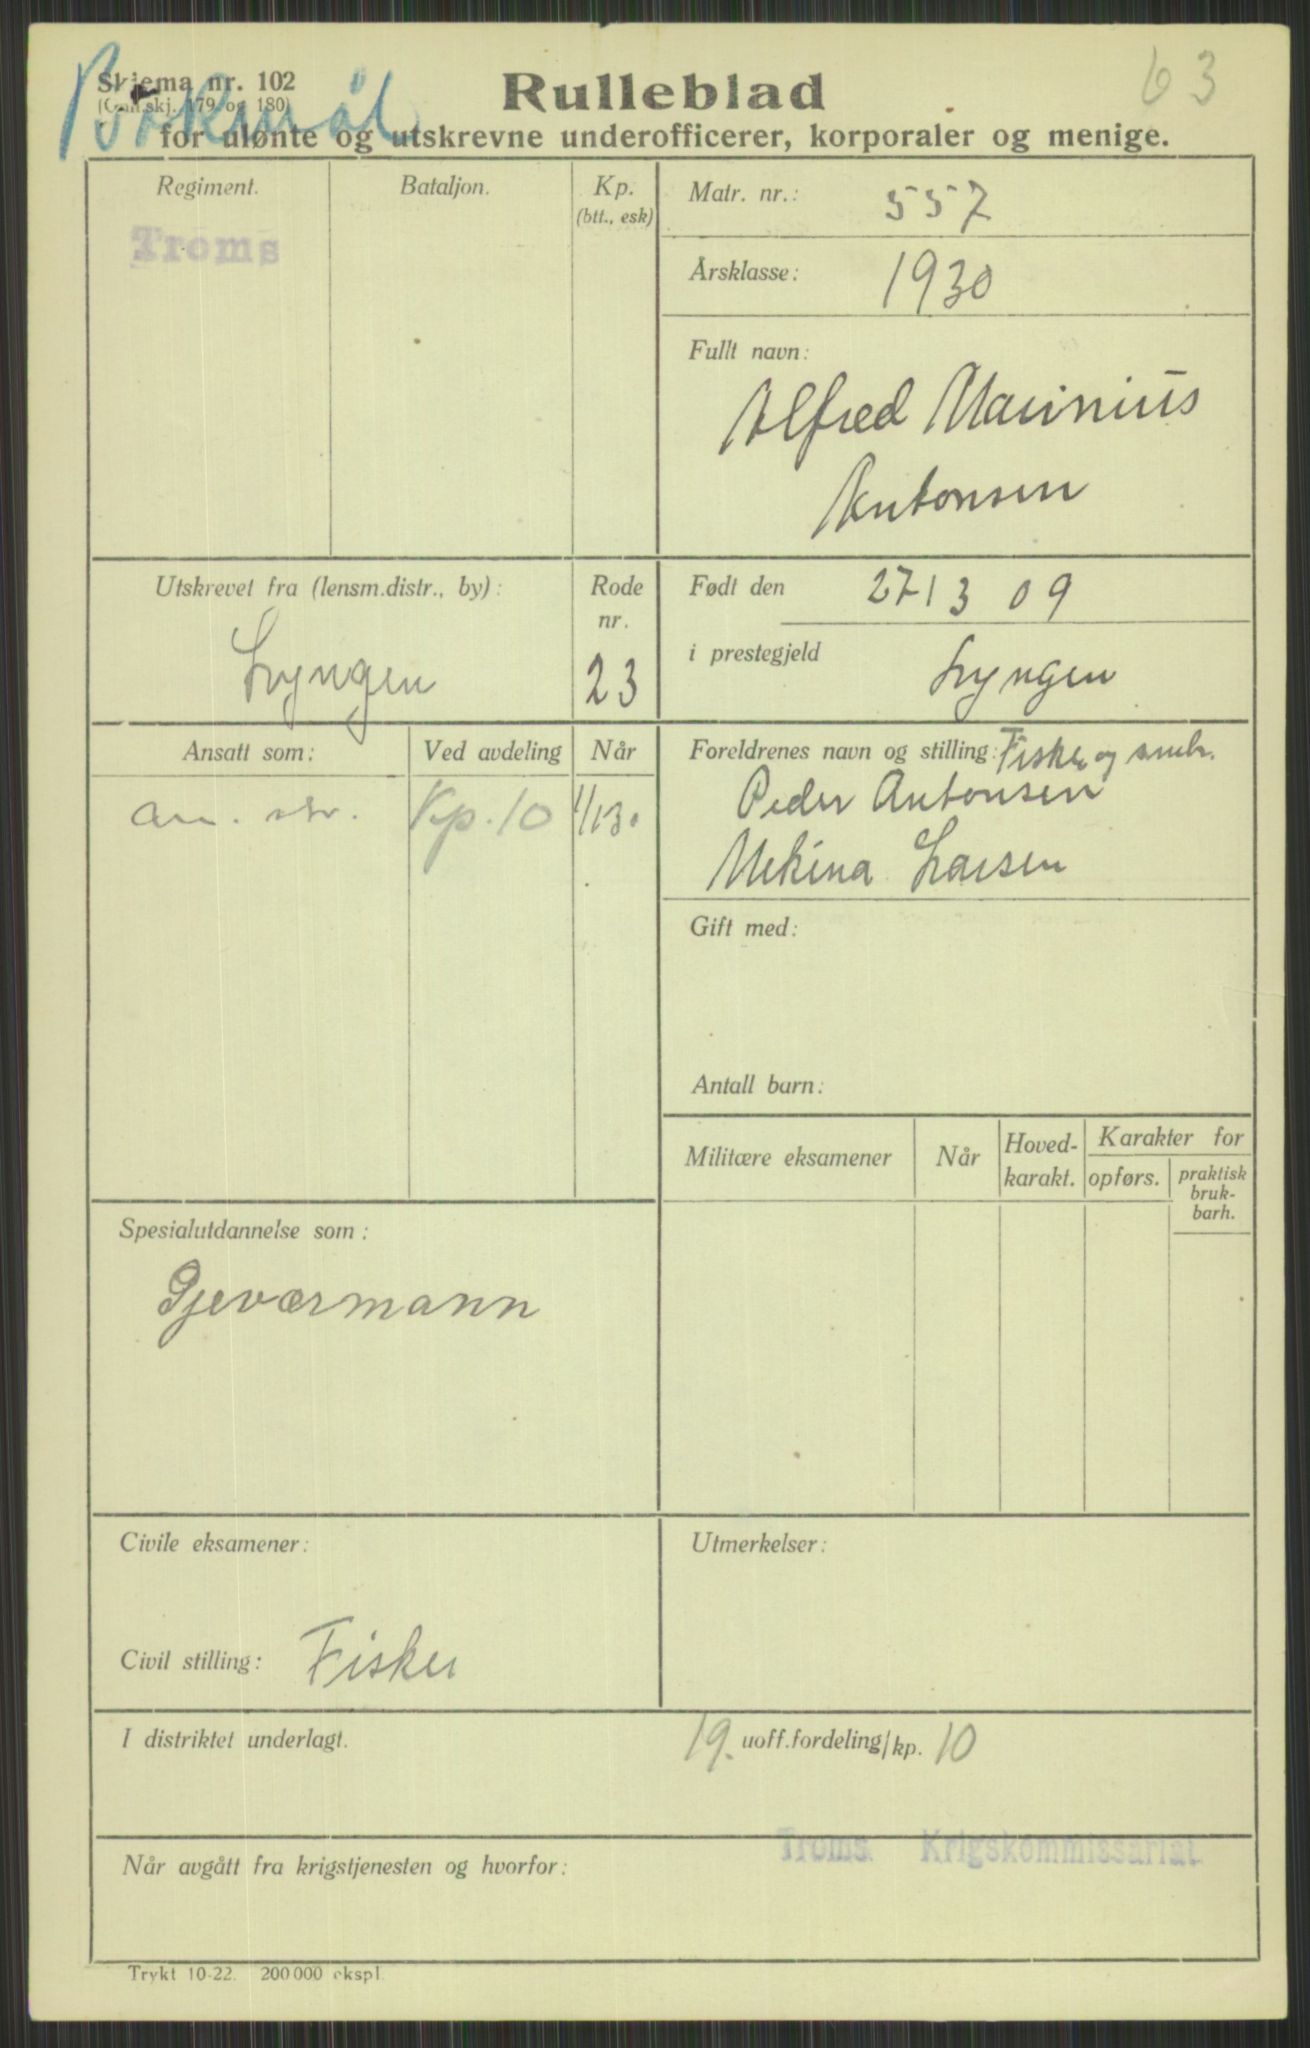 Skjema nr. 102
Rulleblad
63
Bokmål
for ulønte og utskrevne underofficerer, korporaler og menige.
Regiment.
Bataljon.
Kp.
(btt., esk)
Troms
Matr. nr.: 557
Årsklasse: 1930
Fullt navn:
Alfred Marinius
Antonsen
Utskrevet fra (lensm.distr., by):
Lyngen
Rode
nr.
23
Født den 27/3 09
i prestegjeld Lyngen
Ansatt som:
Ved avdeling
Når
an. str.
Kp. 10
Foreldrenes navn og stilling: Fisker og smbr.
Peder Antonsen
Mekina Larsen
Gift med:
Antall barn:
Militære eksamener
Når
Hoved-
karakt.
Karakter for
opførs.
praktisk
bruk-
barh.
Spesialutdannelse som:
Gjeværmann
Civile eksamener:
Civil stilling: Fisker
Utmerkelser:
I distriktet underlagt.
19. uoff.fordeling/kp. 10
Troms Krigskommissariat
Når avgått fra krigstjenesten og hvorfor:
Trykt 10-22. 200 000 ekspl.